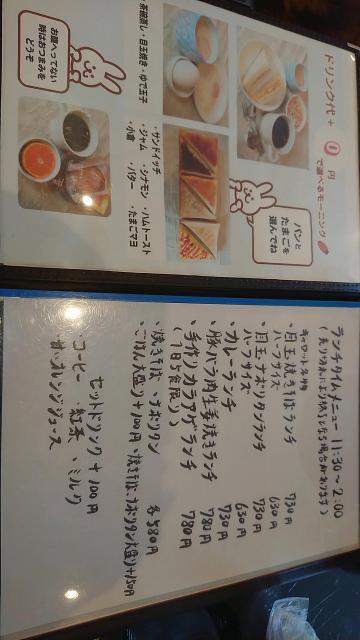 ドリンク代+0円
で選べるモーニング
パンと
たまごを
選んでね
・サンドイッチ
・ジャム ・シナモン ・ハムトースト
・小倉 ・バター ・たまごマヨ
・茶碗蒸し・目玉焼き・ゆで玉子
お腹へってない
時はおつまみを
どうぞ
ランチタイムメニュー 11:30〜2:00
(売り切れにより終了となる場合があります)
・目玉焼きそばランチ 730円
ハーフサイズ 630円
・目玉ナポリタンランチ 730円
ハーフサイズ 630円
・カレーランチ 730円
・豚バラ肉生姜焼きランチ 780円
・手作りカラアゲランチ 780円
(1日5食限り)
・焼きそば ・ナポリタン 各580円
・ごはん大盛り+100円 ・焼きそば、ナポリタン大盛り+150円
セットドリンク +100円
コーヒー ・紅茶 ・ミルク
・オレンジジュース